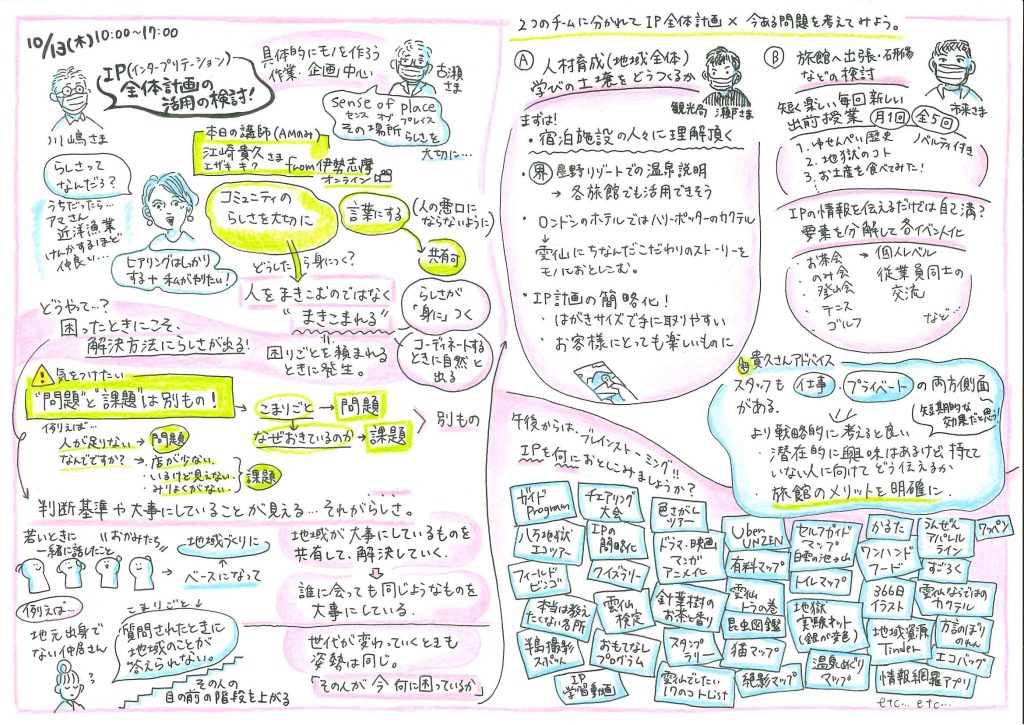 10/13(木)10:00〜17:00
IP(インタープリテーション)
全体計画の
活用の検討!
川嶋さま
具体的にモノを作ろう
作業・企画中心
古瀬
さま
sense of place
センス オブ プレイス
その場所らしさを
大切に…
本日の講師(AMのみ)
江崎貴久さま
エザキ キク
from伊勢志摩
オンライン
らしさって
なんだろ?
うちだったら…
アマさん
近洋漁業
けんかするほど
仲良い…
ヒアリングはしっかり
する+私がやりたい!
コミュニティの
らしさを大切に
言葉にする
(人の悪口に
ならないように)
共有可
どうしたら身につく?
人をまきこむのではなく
"まきこまれる"
=
困りごとを頼まれる
ときに発生。
らしさが
「身に」つく
コーディネートする
ときに自然と
出る
どうやて…?
困ったときにこそ、
解決方法にらしさが出る!
気をつけたい
"問題"と"課題"は別もの!
こまりごと→問題
なぜおきているのか→課題
別もの
例りえば…
人が足りない、→問題
なんでですか?→店が少ない、
いるけど見えない
みりょくがない
課題
判断基準や大事にしていることが見える…それがらしさ。
若いときに
一緒に話したこと
おかみたち
地域づくりに
ベースになって
地域が大事にしているものを
共有して、解決していく。
誰に会っても同じようなものを
大事にしている.
世代が変わっていくときも
姿勢は同じ。
「その人が今何に困っているか」
例りえば…
地元出身で
ない仲居さん
こまりごと
質問されたときに
地域のことが
答えられない。
その人の
目の前の階段を上がる
2つのチームに分かれてIP全体計画×今ある問題を考えてみよう。
Ⓐ 人材育成(地域全体)
学びの土壌をどうつくるか
観光局 瀬戸さま
まずは!
・宿泊施設の人々に理解頂く
・界 星野リゾートでの温泉説明
→各旅館でも活用できそう
・ロンドンのホテルではハリーポッターのカクテル
↓
雲仙にちなんだこだわりのストーリーを
モノにおとしこむ。
・IP計画の簡略化!
・はがきサイズで手に取りやすい
・お客様にとっても楽しいものに
Ⓑ 旅館へ出張・石形修
などの検討
市来さま
短く楽しい毎回新しい
出前授業 月1回 全5回
ノベルティ付き
1.ゆせんぺい歴史
2.地獄のコト
3.お土産を食べてみた!
IPの情報を伝えるだけでは自己満?
要素を分解して各イベント化
・お茶会
のみ会
・登山会
・テニス
ゴルフ
→個人レベル
従業員同士の
交流
など…
貴久さんアドバイス
スタッフも 仕事 プライベート の両方側面
がある.
短期的な
効果だと思う
より戦略的に考えると良い
・潜在的に興味はあるけど持て
いない人に向けてどう伝えるか
・旅館のメリットを明確に.
午後からは、ブレインストーミング!!
IPを何におとしこみましょうか?
ガイド
Program
チェアリング
大会
色さがし
ツアー
Uben
UNZEN
セルフガイド
マップ
かるた
うんぜん
アパレル
ライン
ワッペン
八万地獄
エコツアー
IPの
簡略化
ドラマ・映画
マンガ
アニメ化
有料マップ
トイレマップ
ワンハンド
フード
すごろく
フィールド
ビンゴ
クイズラリー
針葉樹の
お茶と香り
雲仙
トラの巻
昆虫図鑑
地獄
実験ネット
(銀が変色)
366日
イラスト
雲仙ならではの
カクテル
本当は教え
たくない名所
雲仙
検定
スタンプ
ラリー
猫マップ
地域資源
Tinder
方言のぼり
のれん
半島撮影
スポット
おもてなし
プログラム
雲仙でしたい
17のコトList
絶景マップ
温泉めぐり
マップ
情報網羅アプリ
エコバッグ
IP
学習動画
etc… etc…